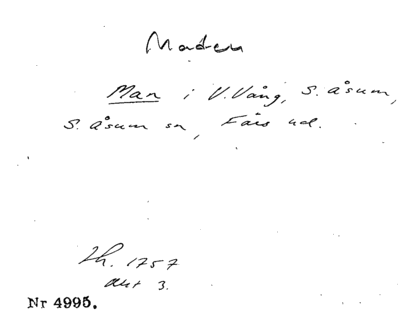 Maden
Man i V. Vång, S. Åsum,
S. Åsum sn, Färs hd.
Lh. 1757
akt 3.
Nr 4995.